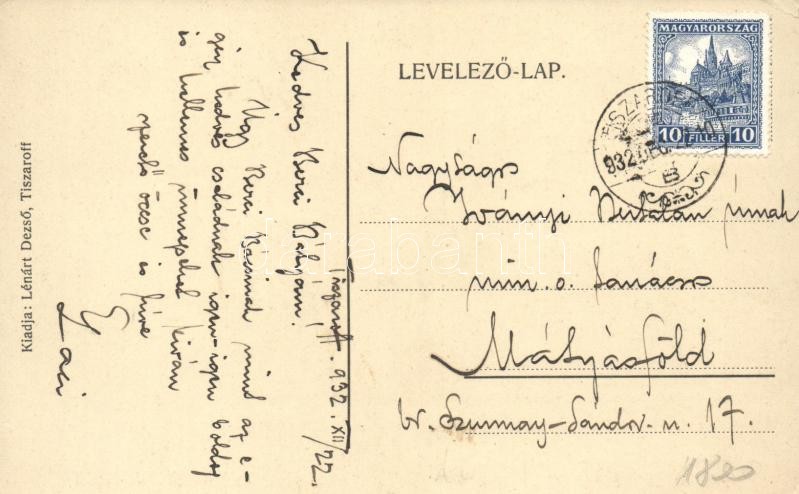 Tiszaroff. 932. XII/22.
Kedves Berci Bátyám!
Úgy Berci Bácsinak mind az e-
gész kedves családnak igen-igen boldog
és kellemes ünnepeket kíván
öccse és híve
Laci
Kiadja: Lénárt Dezső, Tiszaroff
LEVELEZŐ-LAP.
MAGYARORSZÁG
10 FILLÉR 10
TISZAROFF
932 DEC. 22
B
Nagyságos
Iványi Bertalan úrnak
min. o. tanácsos
Mátyásföld
br. Szurmay-Sándor-u. 17.
1800
darabanth